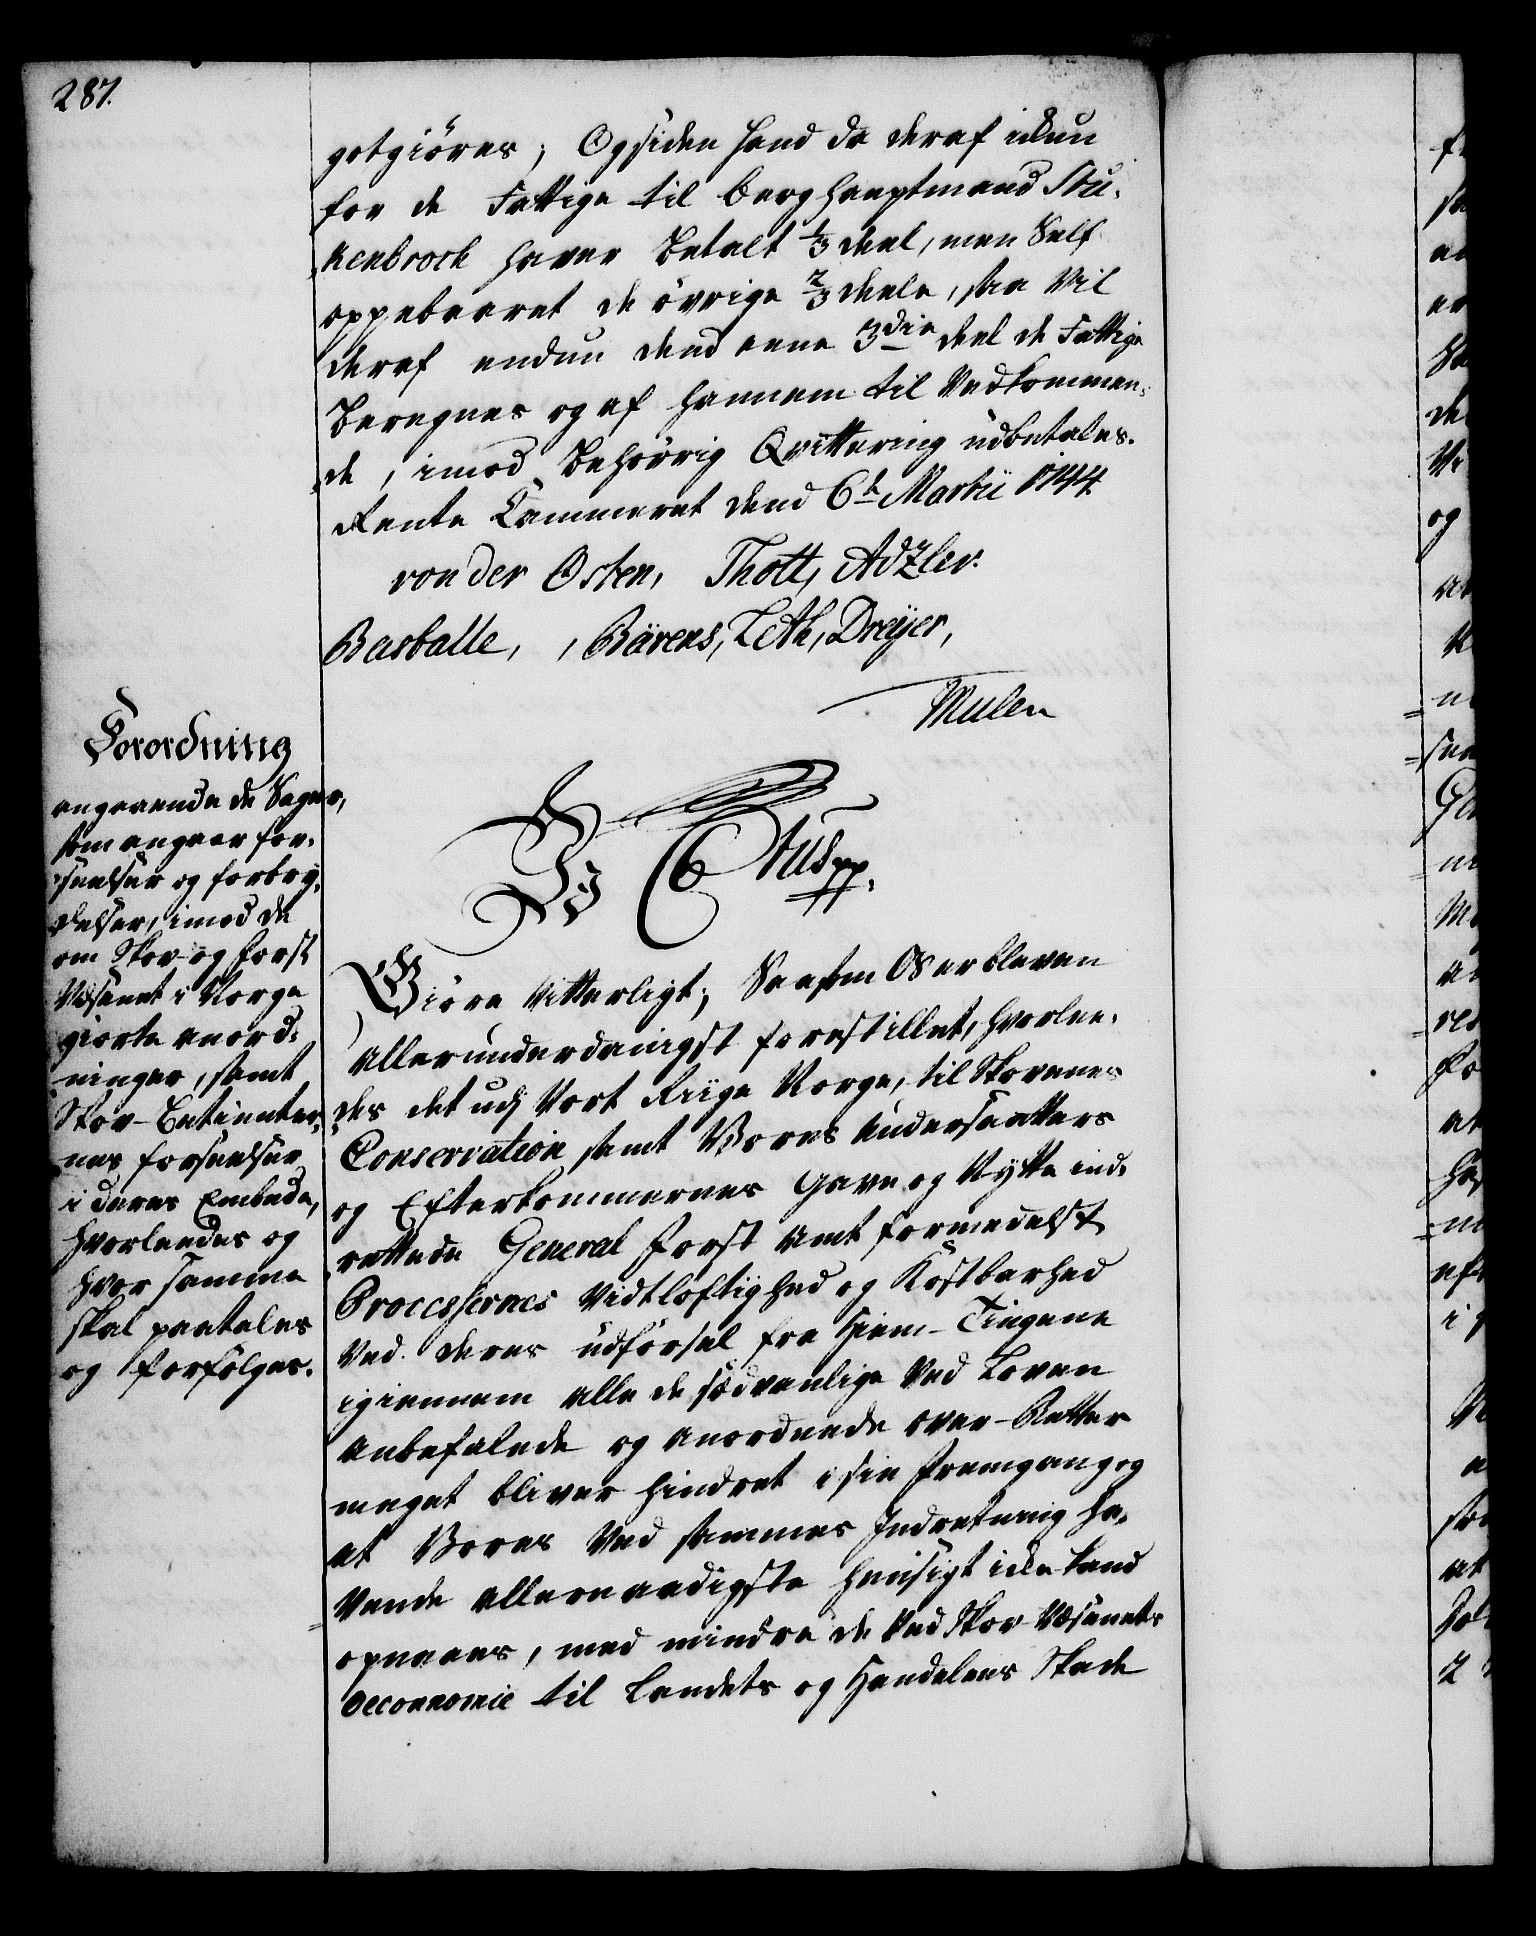 287.
gotgiöres; Og siden hand da deraf ickun
for de Fattige til Berghauptmand Stu-
kenbrock haver Betalt 1/3 deel, men Self
oppebaaret de övrige 2/3 deele, saa Vil
deraf endnu dend eene 3die deel de Fattige
Beregnes og af hannem til Vedkommen-
de, imod Behörrig Qvittering udbetales.
Rente Cammeret dend 6t Martii 1744
von der Osten, Thott, Adzler.
Basballe, Bärens, Leth, Dreÿer,
Mulen
Forordning
angaaende de Sager,
som angaar for-
seelser og forbry-
delser, imod de
om Skov- og Forst
Væsenet i Norge
giorte anord-
ninger, samt
Skov-Betienter-
nes forseelser
i deres Embede,
hvorleedes og
hvor samme
skal paatales
og forfölges.
Vj C6tus pp.
Giöre Vitterligt; Saasom Os er bleven
allerunderdanigst forestillet, hvorlee-
des det udj Vort Riige Norge, til Skovenes
Conservation samt Vores Undersaatters
og Efterkommernes Gavn og Nÿtte ind-
rettede General Forst Amt formedelst
Processernes Vidtloftighed og Kostbarhed
Ved deres udförsel fra Hiem-Tingene
igiennem alle de sædvanlige Ved Loven
anbefalede og anordnede Over-Retter
meget bliver hindret i sin fremgang og
at Vores Ved sammes Indretning ha-
vende allernaadigste hensigt icke kand
opnaaes, med mindre de Ved Skov-Væsenets
oeconomie til Landets og Handelens Skade